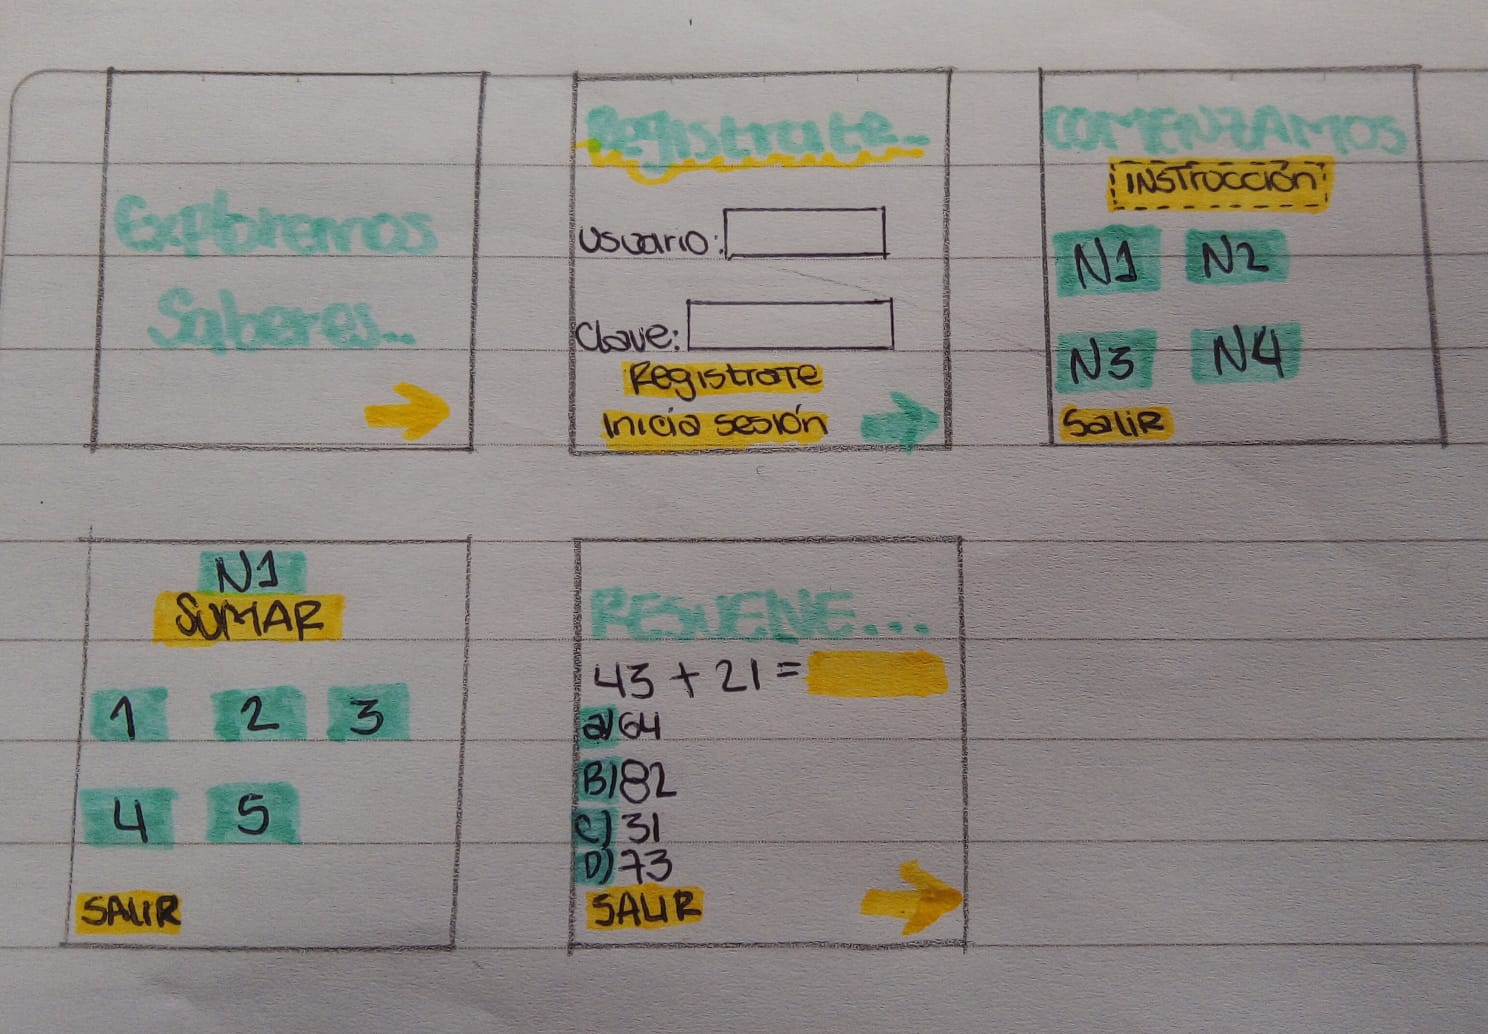 Exploremos
Saberes...
Registrate...
Usuario:
Clave:
Registrate
Inicia sesión
COMENZAMOS
INSTrucción
N1 N2
N3 N4
SaliR
N1
SUMAR
1 2 3
4 5
SALIR
RESUELVE...
43 + 21 =
a) 64
B) 82
C) 31
D) 73
SALIR